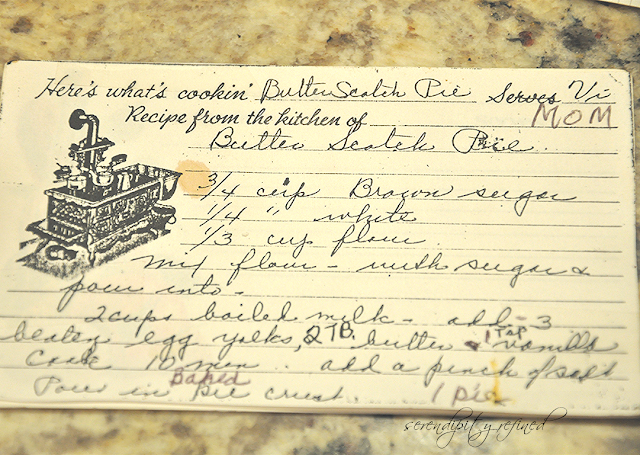 Here's what's cookin' Butter Scotch Pie Serves
Recipe from the kitchen of MOM
Butter Scotch Pie
3/4 cup Brown sugar
1/4 " white
1/3 cup flour
mix flour - with sugar &
pour into -
2 cups boiled milk - add - 3
beaten egg yolks, 2 TB. butter & 1 Tsp vanilla
Cook 10 min.. add a pinch of salt
Pour in Baked Pie crust. 1 pie
serendipity refined